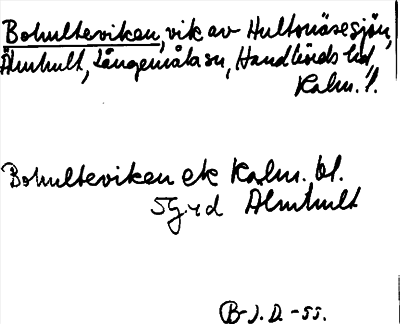 Bohulteviken, vik av Hultsnäsesjön,
Älmhult, Långemåla sn, Handbörds hd,
Kalm. l.
Bohulteviken ek Kalm. bl.
5G yd Älmhult
B-J.D.-55.